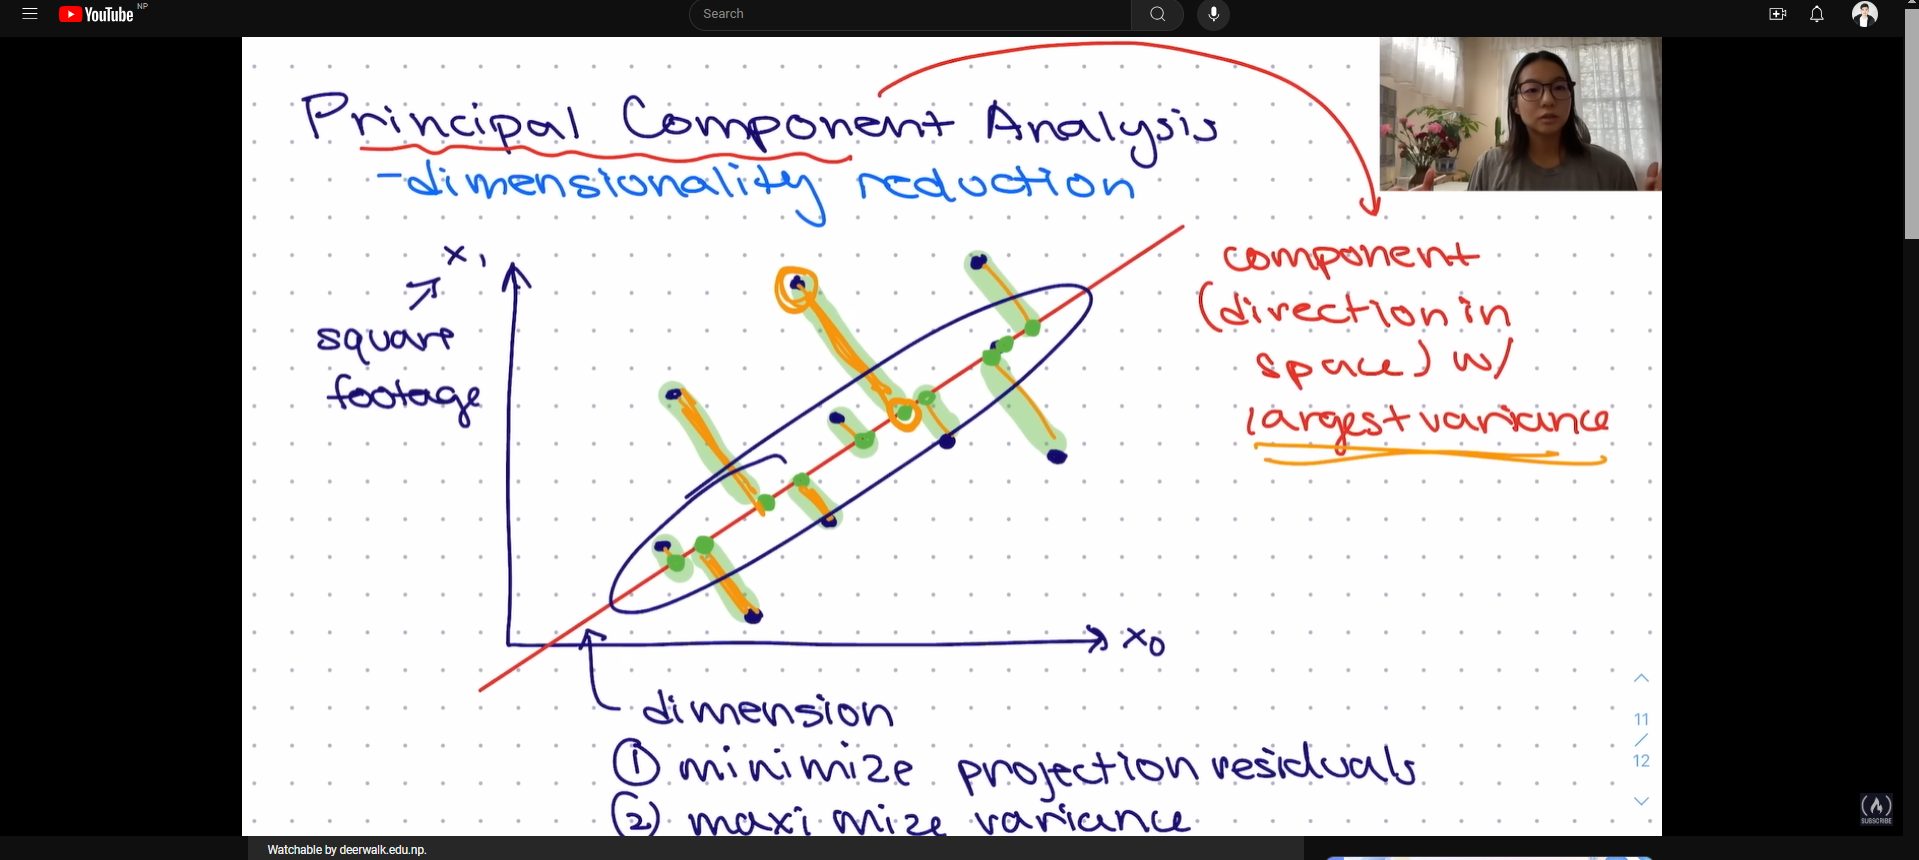 YouTube NP
Search
Principal Component Analysis
-dimensionality reduction
x1
square
footage
component
(direction in
space) w/
largest variance
x0
dimension
① minimize projection residuals
② maximize variance
11
/
12
SUBSCRIBE
Watchable by deerwalk.edu.np.